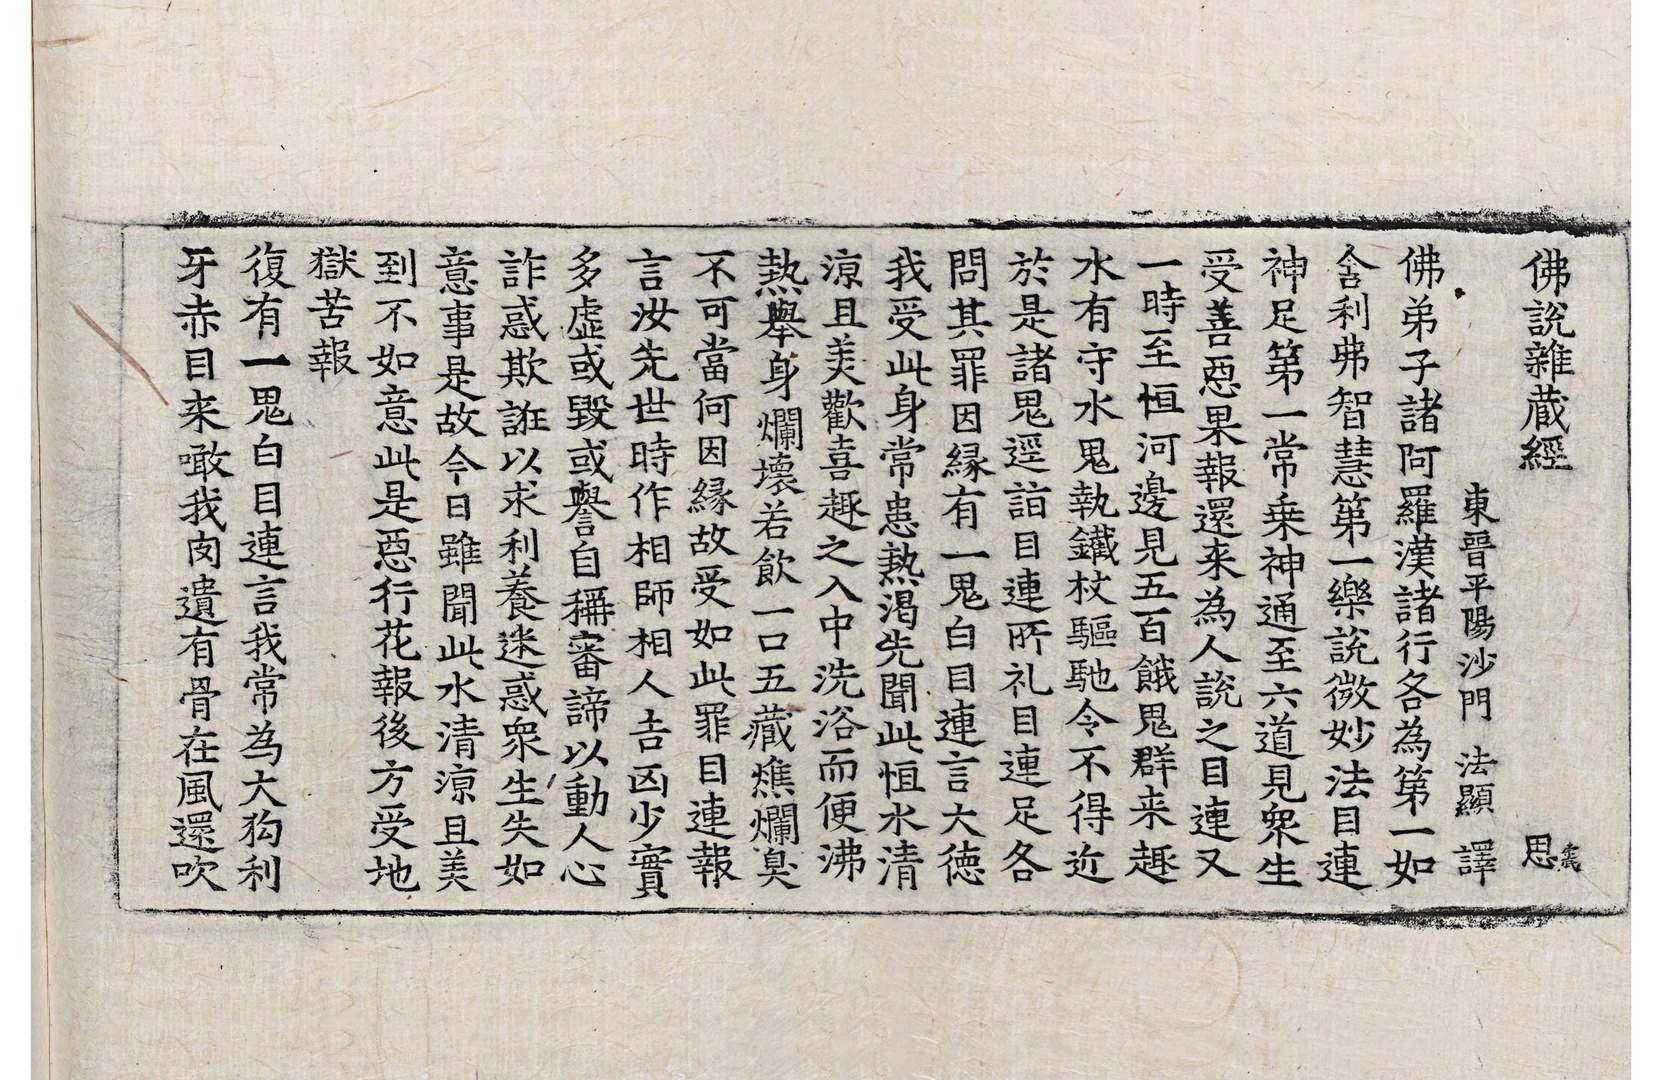 佛說雜蔵經 思
東晉平陽沙門 法顯 譯
佛弟子諸阿羅漢諸行各為第一如
舍利弗智慧第一樂說微妙法目連
神足第一常乗神通至六道見衆生
受善惡果報還来為人說之目連又
一時至恒河邊見五百餓鬼群来趣
水有守水鬼執鐵杖驅馳令不得近
於是諸鬼逕詣目連所礼目連足各
問其罪因縁有一鬼白目連言大德
我受此身常患熱渴先聞此恒水清
涼且美歡喜趣之入中洗浴而便沸
熱舉身爛壞若飲一口五藏燋爛臭
不可當何因縁故受如此罪目連報
言汝先世時作相師相人吉凶少實
多虛或毀或譽自稱審諦以動人心
詐惑欺誑以求利養迷惑衆生失如
意事是故今日雖聞此水清涼且美
到不如意此是惡行花報後方受地
獄苦報
復有一鬼白目連言我常為大狗利
牙赤目来噉我肉遺有骨在風還吹